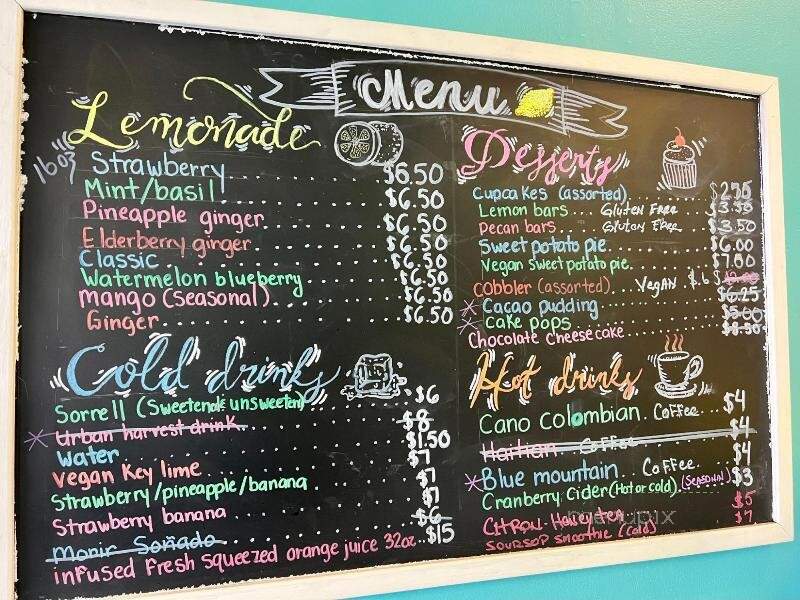 Menu
Lemonade
16oz
Strawberry $6.50
Mint/basil $6.50
Pineapple ginger $6.50
Elderberry ginger $6.50
Classic $6.50
Watermelon blueberry $6.50
Mango (seasonal) $6.50
Ginger $6.50
Cold drinks
Sorrell (Sweetened unsweeten) $6
Urban harvest drink $8
Water $1.50
Vegan Key lime $7
Strawberry/pineapple/banana $7
Strawberry banana $7
Morir Soñado $6
infused Fresh squeezed orange juice 32oz $15
Desserts
Cupcakes (assorted)
Lemon bars Gluten Free $3.50
Pecan bars Gluten Free $3.50
Sweet potato pie $6.00
Vegan sweet potato pie $7.00
Cobbler (assorted) Vegan $6
Cacao pudding $6.25
Cake pops $5.00
Chocolate cheesecake $8.50
Hot drinks
Cano Colombian Coffee $4
Haitian Coffee $4
Blue mountain Coffee $4
Cranberry Cider (Hot or cold) (Seasonal) $3
CITRON-Honey tea $5
SOURSOP smoothie (cold) $7